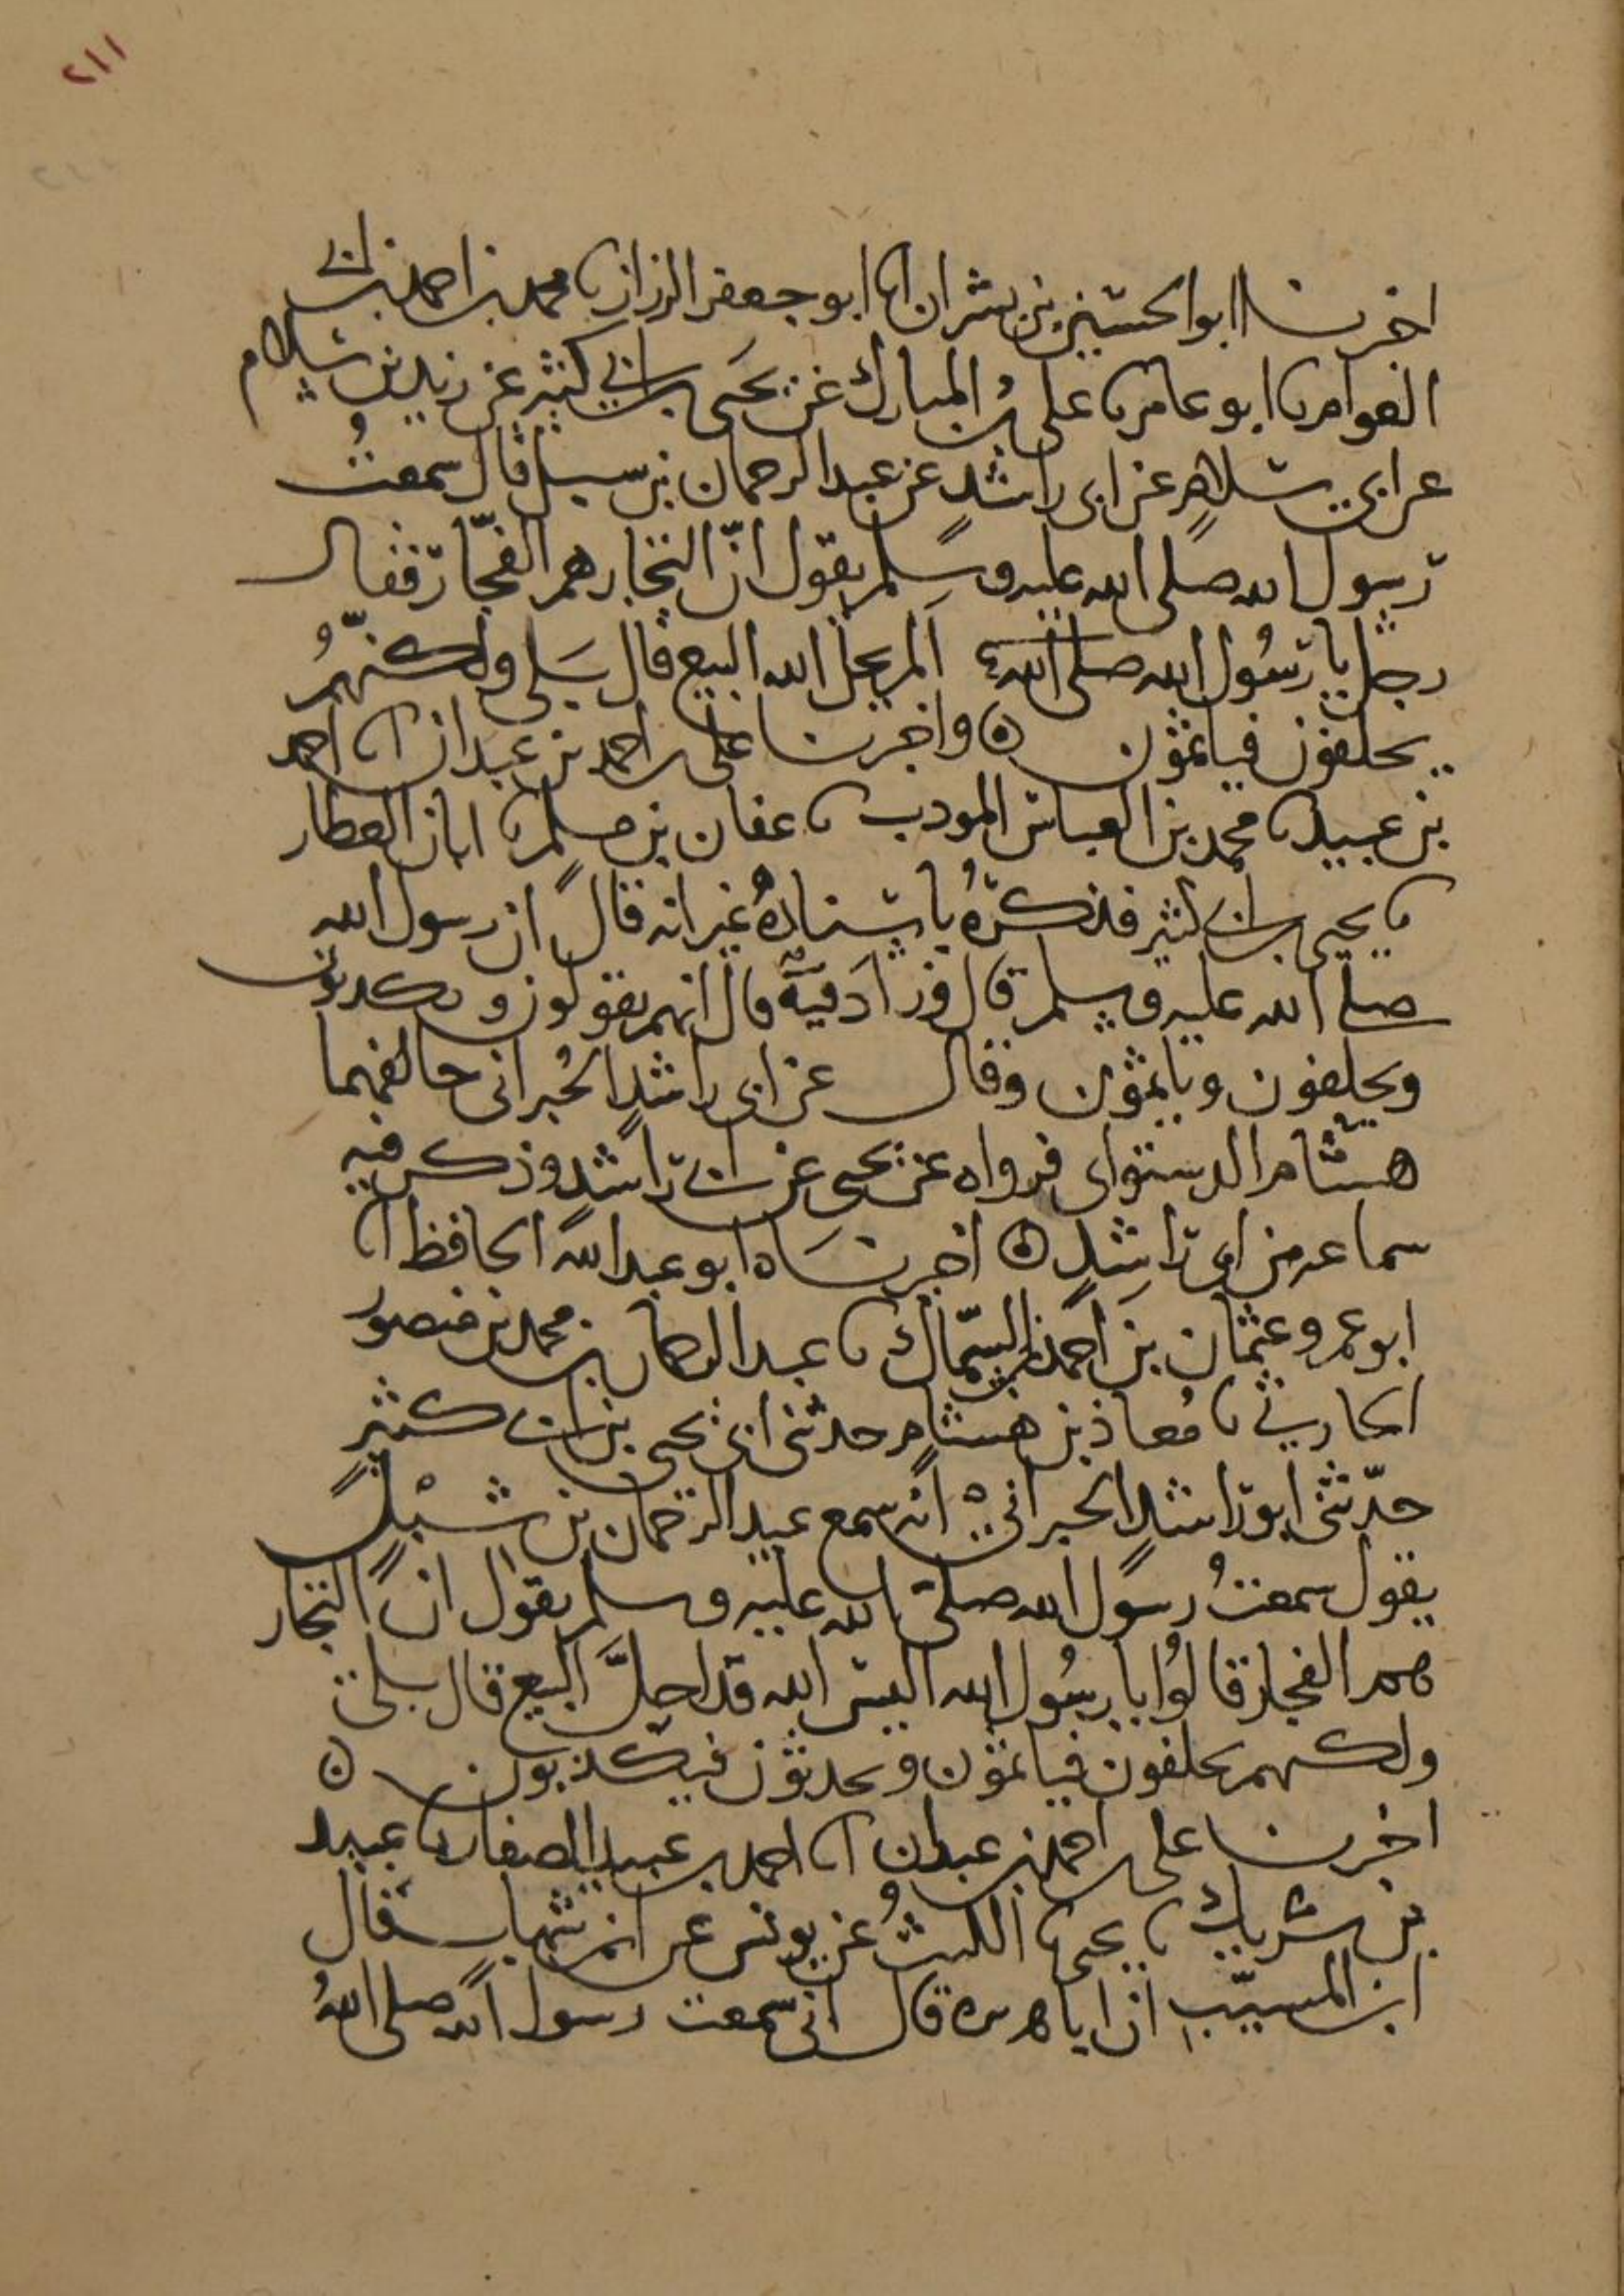 ٢١١
اخبرنا ابو الحسين بن بشران انا ابو جعفر الرزاز نا محمد بن احمد بن ابي
العوام نا ابو عامر نا علي بن المبارك عن يحيى بن ابي كثير عن زيد بن سلام
عن ابي سلام عن ابي راشد عن عبد الرحمان بن سبل قال سمعت
رسول الله صلى الله عليه وسلم يقول انّ التجار هم الفجّار فقال
رجل يا رسُول الله صلى الله الم يحل الله البيع قال بَلى ولكنّهُم
يحلفون فياثمون ۞ واخبرنا علي بن احمد بن عبدان انا احمد
بن عبيد نا محمد بن العباس المودب نا عفان بن مسلم نا ابان العطار
نا يحيى بن ابي كثير فذكرهُ باسنادهُ غير انه قال ان رسول الله
صلى الله عليه وسلم قال وزادَ فيهِ قال انهم يقولون ويكذبون
ويحلفون وياثمون وقال عن ابي راشد الحُبراني خالفهما
هشام الدستواى فرواه عن يحيى عن ابي راشد وذكر فيه
سماعه من ابي راشد ۞ اخبرنَاه ابو عبد الله الحافظ انا
ابو عمرو عثمان بن احمد بن السّماك نا عبد الرحمان بن محمد بن منصور
الحارثي نا مُعاذ بن هشام حدثني ابي عن يحيى بن ابي كثير
حدّثني ابو راشد الحبراني انه سمع عبد الرحمان بن شبْل
يقول سمعتُ رسول الله صلى الله عليه وسلم يقول ان التجار
هم الفجار قالوُا يا رسُول الله اليس الله قد احلَّ البيع قال بلى
ولكنهم يحلفون فياثمون ويحدثون فيكذبون ۞
اخبرنا علي بن احمد بن عبدان انا احمد بن عبيد الصفار نا عبيد
بن شريك نا يحيى نا الليثُ عن يونس عن ابن شهاب قال
ابن المسيّب ان ابا هريرة قال اني سمعت رسول الله صلى اللهُ